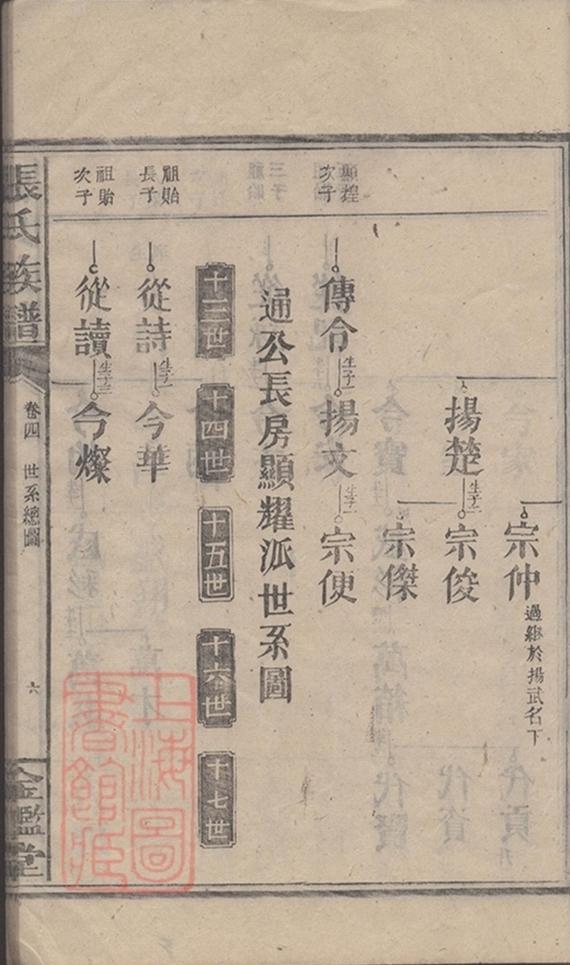 宗仲
過繼於揚武名下
揚楚
生子二
宗俊
宗傑
顯煌
次子
傳令
生子二
揚文
生子二
宗便
通公長房顯耀派世系圖
十三世
十四世
十五世
十六世
十七世
祖貽
長子
從詩
生子一
今華
祖貽
次子
從讀
今燦
張氏族譜
卷四
世系總圖
六
金鑑堂
上海圖書館藏